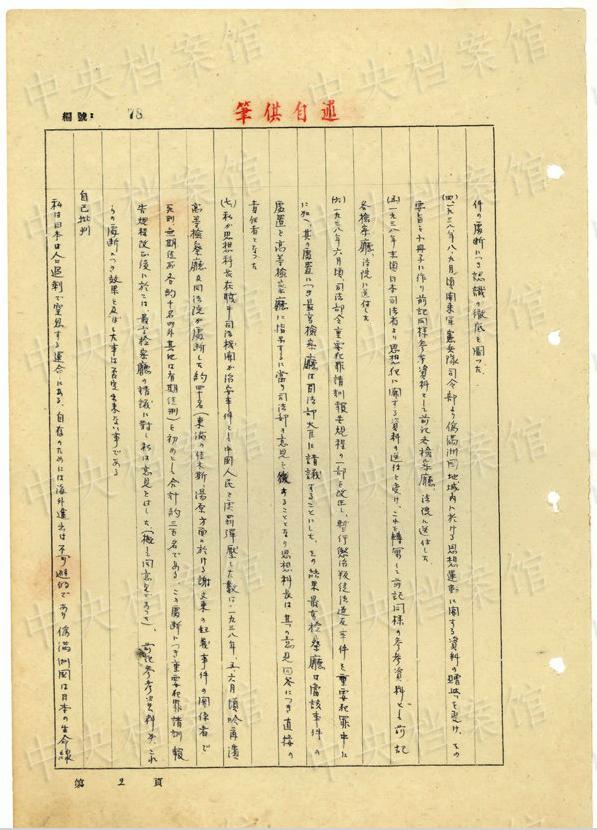 編號: 78
筆供自述
件の処断につき認識の徹底を図つた
(四)一九三八年八、九月頃関東軍憲兵隊司令部より偽満洲国地域内に於ける思想運動に関する資料の贈与を受け、その
要旨を小冊子に作り前記同様参考資料として前記各検察庁、法院に送付した
(五)一九三八年末頃日本司法省より思想犯に関する資料の送付を受け、これを して前記同様の参考資料として前記
各検察庁、法院に送付した
(六)一九三八年六月頃司法部令重要犯罪情勢報告規程の一部を改正し、暫行懲治叛徒法違反事件を重要犯罪中に
に加へ其の処置につき最高検察庁は司法部大臣に請議することにし、その結果最高検察庁は当該事件の
処置を高等検察庁に指示するに当り司法部の意見を徴することとなり思想科長は其の意見回答につき直接の
責任者となつた
(七)私が思想科長在職中司法機関が治安事件として中国人民を処罰弾圧した数は一九三八年五、六月頃哈爾濱
高等検察庁及同法院が処断した約 名(東満の佳木斯、湯原方面に於ける謝文東の起義事件の関係者で
死刑、無期徒刑各約十名の外其他は有期徒刑)を初めとし合計約三百名である、この処断につき重要犯罪情勢報
告規程改正後に於ては最高検察庁の請議に対し私は意見を付した(概して同意見であつた)、前記参考資料が、これ
らの処断につき効果を及ぼした事は否定出来ない事である
自己批判
私は日本は人口過剰で窒息する運命にある、自存のためには海外進出は不可避的であり偽満洲国は日本の生命線
第 2 頁
中央档案馆